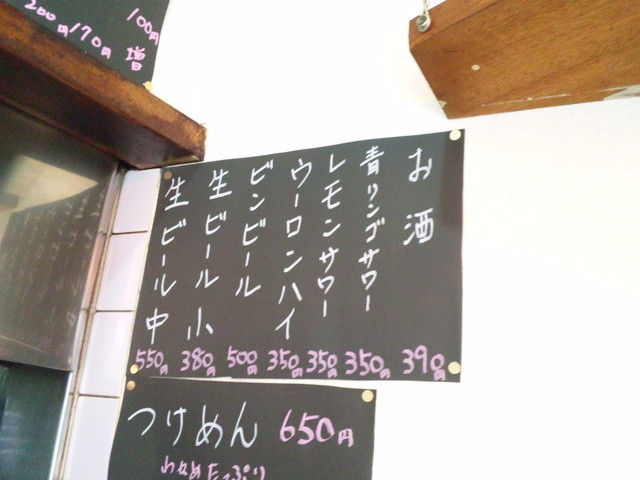 お酒 390円
青リンゴサワー 350円
レモンサワー 350円
ウーロンハイ 350円
ビンビール 500円
生ビール小 380円
生ビール中 550円
つけめん 650円
わかめたっぷり
100円増
170円
200円